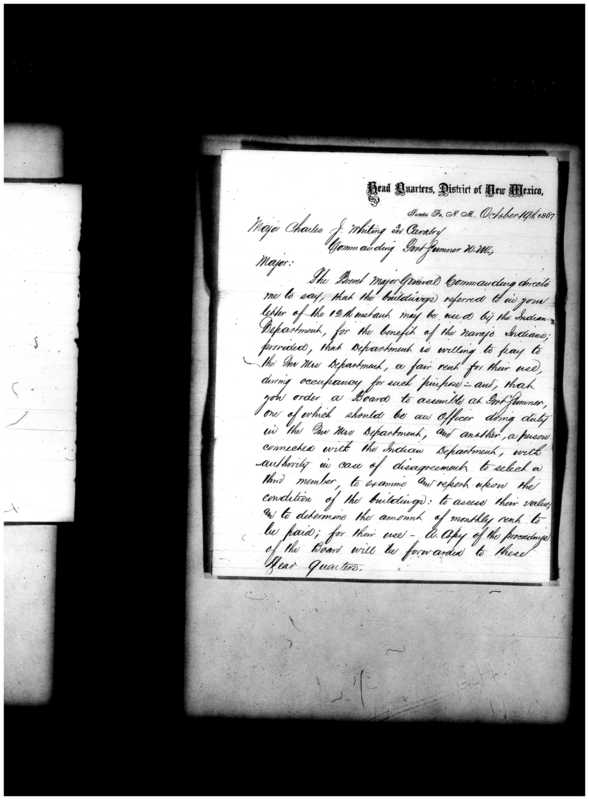 Head Quarters, District of New Mexico,
Santa Fe, N. M., October 19th 1867
Major Charles J. Whiting 3d Cavalry
Commanding Fort Sumner N.M.,
Major:
The Brevet Major General Commanding directs
me to say, that the buildings referred to in your
letter of the 12th instant may be used by the Indian
Department, for the benefit of the Navajo Indians;
provided, that Department is willing to pay to
the Qr Mrs Department, a fair rent for their use,
during occupancy for such purpose – and, that
you order a Board to assemble at Fort Sumner,
one of which should be an Officer doing duty
in the Qr Mrs Department, and another, a person
connected with the Indian Department, with
authority in case of disagreement to select a
third member, to examine and report upon the
condition of the buildings: to assess their value,
and to determine the amount of monthly rent to
be paid; for their use – A Copy of the proceedings
of the Board will be forwarded to these
Head Quarters.